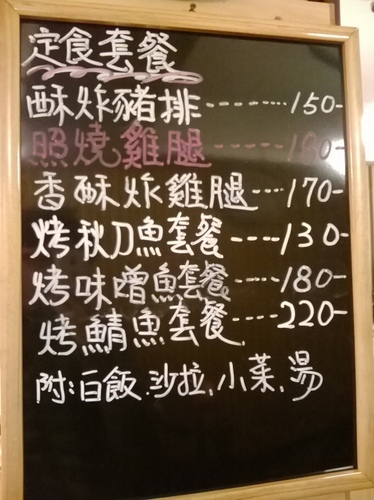 定食套餐
酥炸豬排-------150-
照燒雞腿-----180-
香酥炸雞腿----170-
烤秋刀魚套餐---130-
烤味噌魚套餐---180-
烤鯖魚套餐.---220-
附:白飯.沙拉.小菜.湯